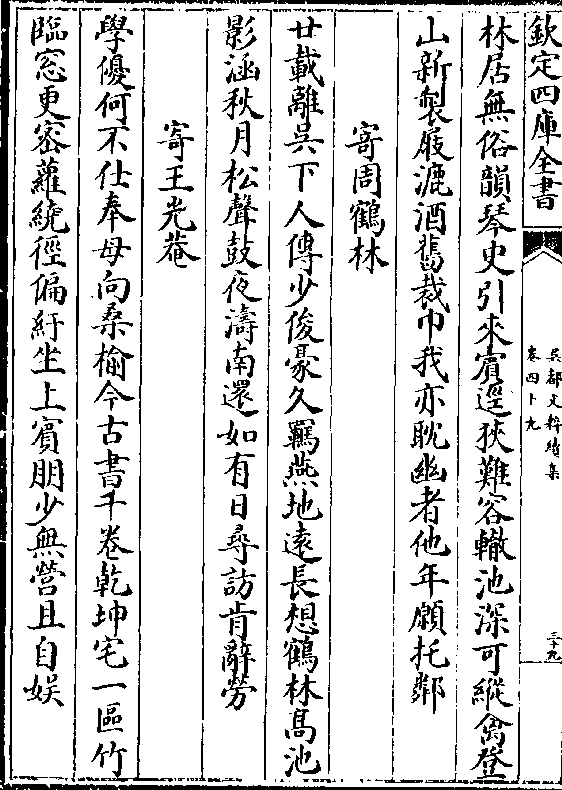 欽定四庫全書
吳都文粹續集
卷四十九
三十九
林居無俗韻琴史引來賓逕狹難容轍池深可縱禽登
山新製屐漉酒舊裁巾我亦耽幽者他年願托鄰
寄周鶴林
廿載離吳下人傳少俊豪久羈燕地遠長想鶴林高池
影涵秋月松聲鼓夜濤南還如有日尋訪肯辭勞
寄王光菴
學優何不仕奉母向桑榆今古書千卷乾坤宅一區竹
臨窓更密蘿繞徑偏紆坐上賓朋少無營且自娱